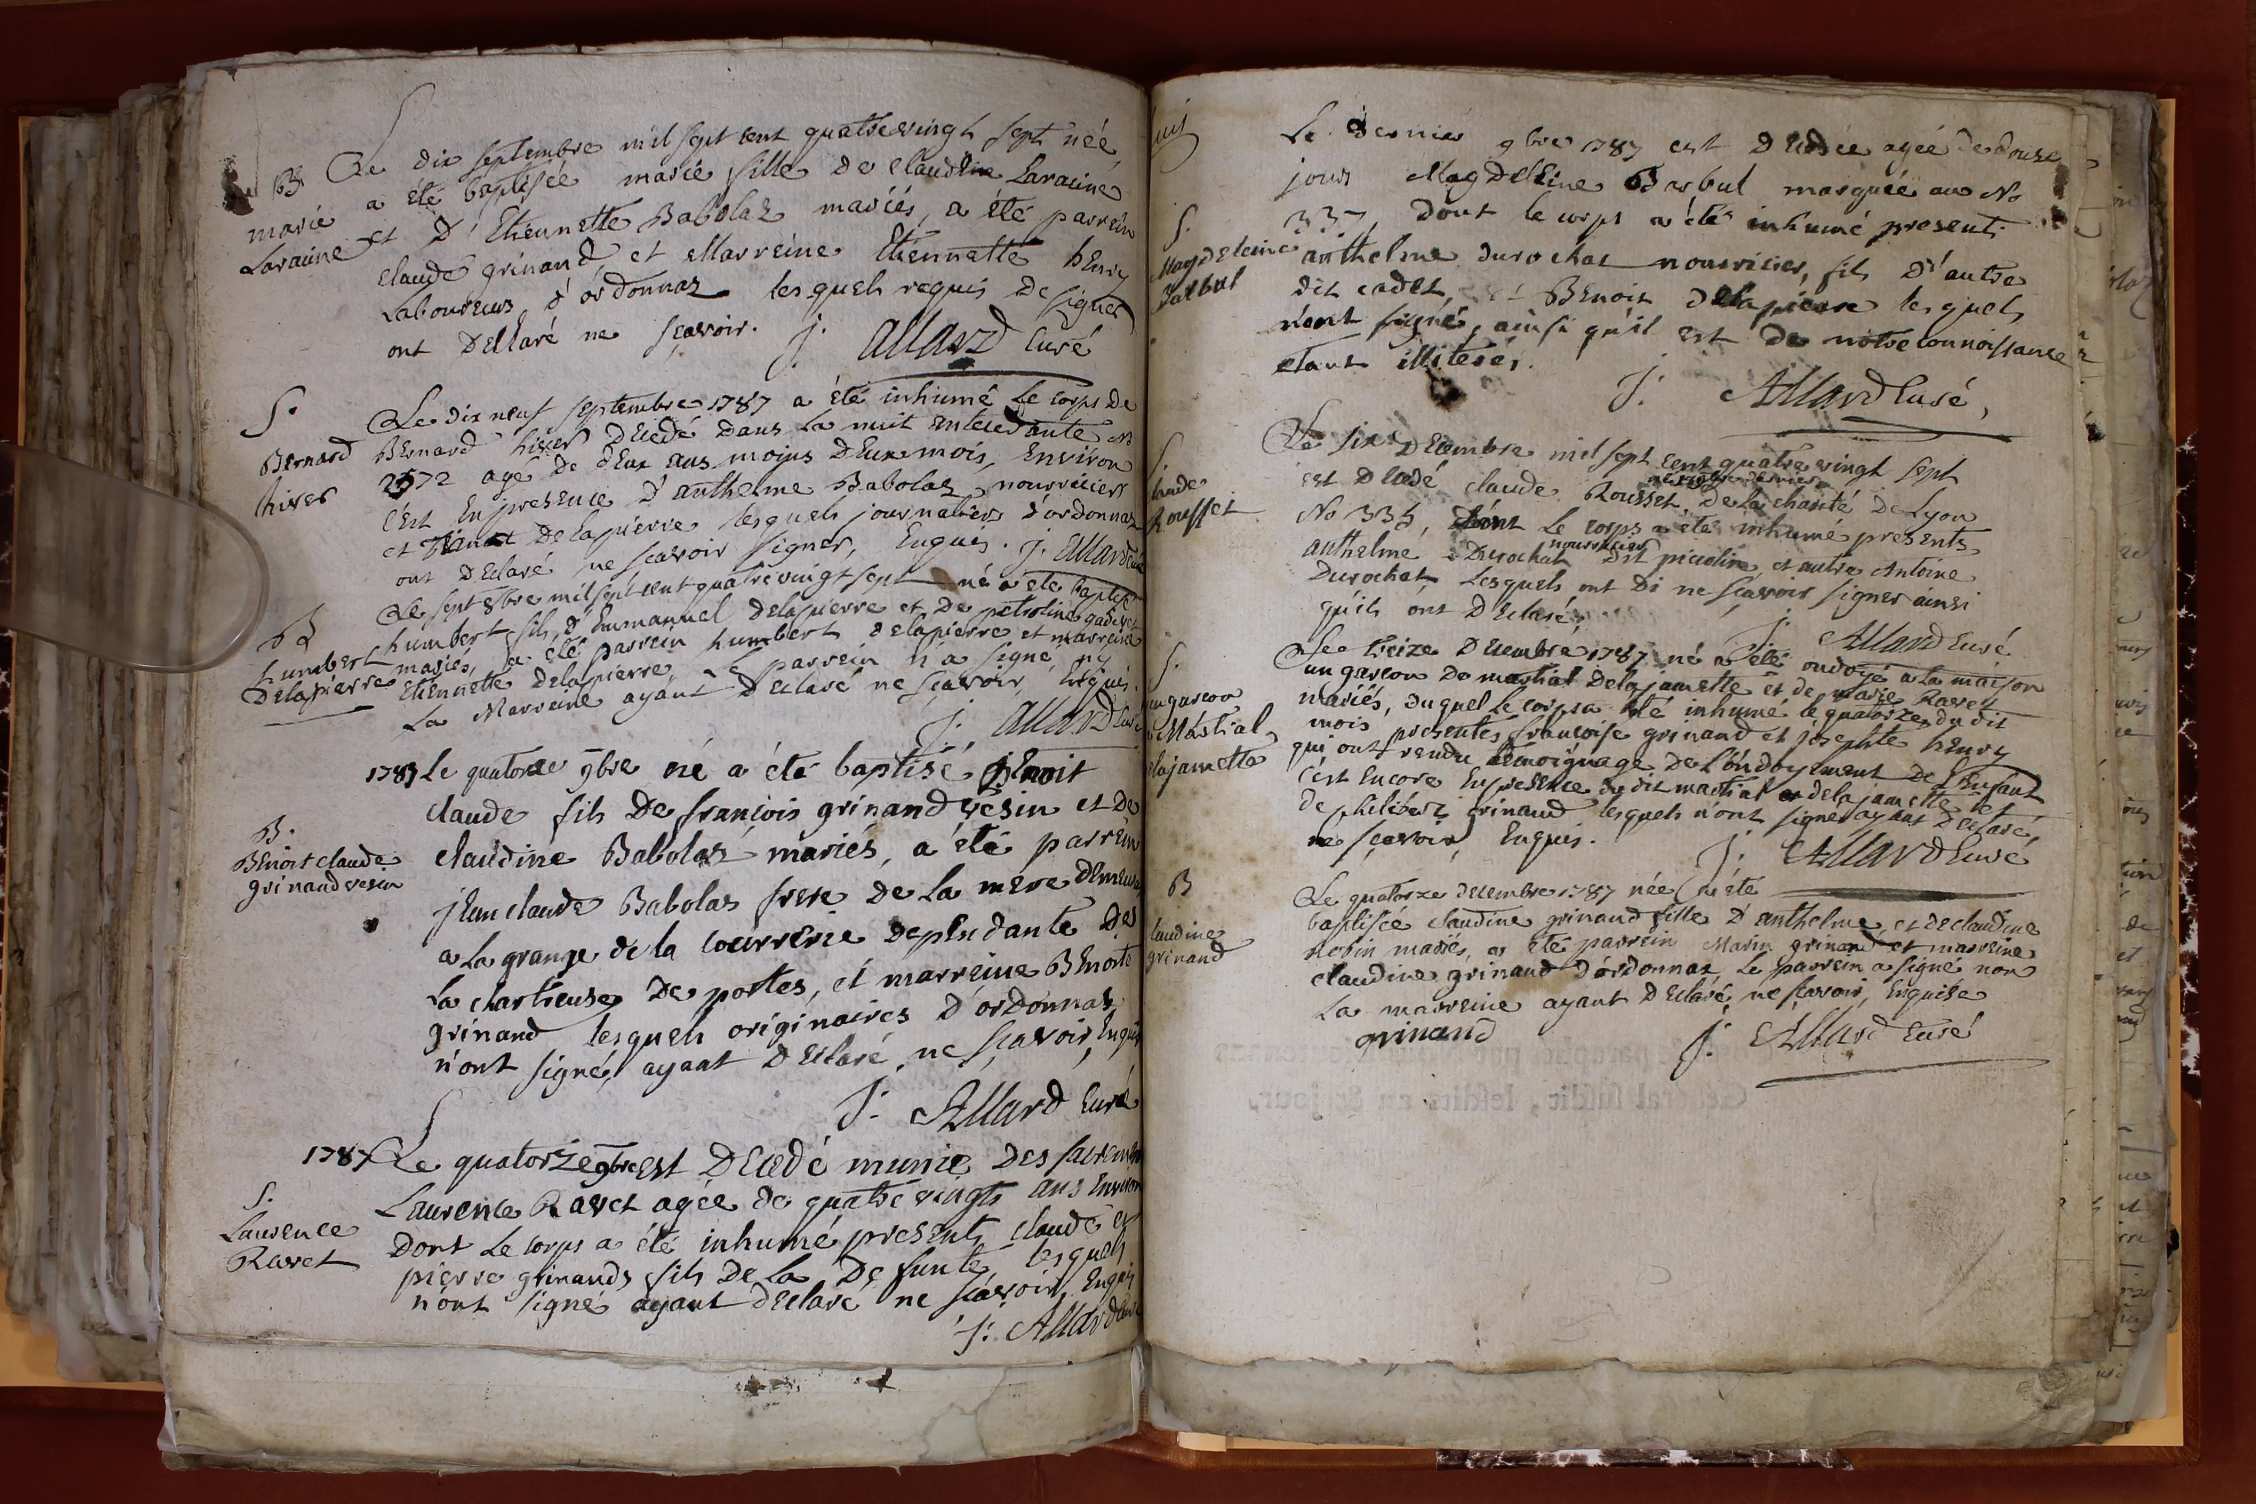 B
marie
Laracine
Le dix septembre mil sept cent quatre vingt sept née
a été baptisée marie fille de claudine Laracine
et D'Etiennette Babolaz mariés, a été parrein
claude grinand et Marreine Etiennette henry
Laboureurs d'ordonnaz lesquels requis de signer
ont Declaré ne sçavoir. J. Allard Curé
S.
Bernard
hiver
Le dix neuf septembre 1787 a été inhumé Le corps de
Bernard hiver Decedé dans La nuit antecedante No
2572 agé de deux ans moins Deux mois, Environ
c'est En presence d'anthelme Babolaz nourricier
et Benoit Delapierre lesquels journaliers d'ordonnaz
ont declaré ne sçavoir signer, Enquis. J. Allard Curé
B
humbert
Delapierre
Le sept 8bre mil sept cent quatre vingt sept né a été baptisé
humbert fils d'Emmanuel Delapierre et de petroline
mariés, a été parrein humbert delapierre et marreine
Etiennette Delapierre Le parrein n'a signé ny
La Marreine ayant Declaré ne sçavoir, Enquis.
J. Allard Curé
B.
Benoit claude
grinand vesin
1787 Le quatorze 9bre né a été baptisé Benoit
claude fils de françois grinand vesin et de
claudine Babolaz mariés, a été parrein
jean claude Babolaz frere de La mere demeurant
a La grange de la courrerie dependante Des
La chartreuse De portes, et marreine Benoite
grinand lesquels originaires D'ordonnaz
n'ont signé, ayant Declaré ne sçavoir, Enquis
J. Allard Curé
S.
Laurence
Ravet
1787 Le quatorze 9bre est Decedé munie Des sacremens
Laurence Ravet agée de quatre vingts ans Environ
Dont Le corps a été inhumé presents claude et
pierre grinands fils De la Defunte, lesquels
n'ont signé ayant declaré ne sçavoir, Enquis
J. Allard Curé
S.
Magdeleine
Barbul
Le dernier 9bre 1787 est Decedée agée de douze
jours Magdeleine Barbul marquée au No
337, dont le corps a été inhumé presents
anthelme durochat nourricier, fils d'autre
dit cadet, et Benoit delapierre lesquels
n'ont signé, ainsi qu'il est de notre connoissance
etant illiterés.
J. Allard Curé,
Claude
Rousset
Le six Decembre mil sept cent quatre vingt sept
est decedé claude Rousset de La charité de Lyon
No 335, dont Le corps a été inhumé presents
nourricier
anthelme Durochat dit picolin et autre Antoine
Durochat Lesquels ont di ne sçavoir signer ainsi
qu'ils ont Declaré.
J. Allard Curé
S.
un garcon
Martial
Delajamette
Le treize Decembre 1787 né a été ondoyé a La maison
un garcon De martial Delajamette et de marie Ravet
mariés, duquel Le corps a été inhumé le quatorze du dit
mois presentes françoise grinand et josephte henry
qui ont rendu temoignage de L'ondoyement de L'Enfant
c'est Encore En presence du dit martial delajamette et
de philibert grinand lesquels n'ont signé ayant declaré
ne sçavoir, Enquis.
J. Allard Curé
B
Claudine
grinand
Le quatorze decembre 1787 née a été
baptisée claudine grinand fille d'anthelme, et de claudine
robin mariés, a été parrein Marin grinand et marreine
claudine grinand d'ordonnaz, Le parrein a signé non
La marreine ayant Declaré ne sçavoir, Enquise
grinand
J. Allard Curé